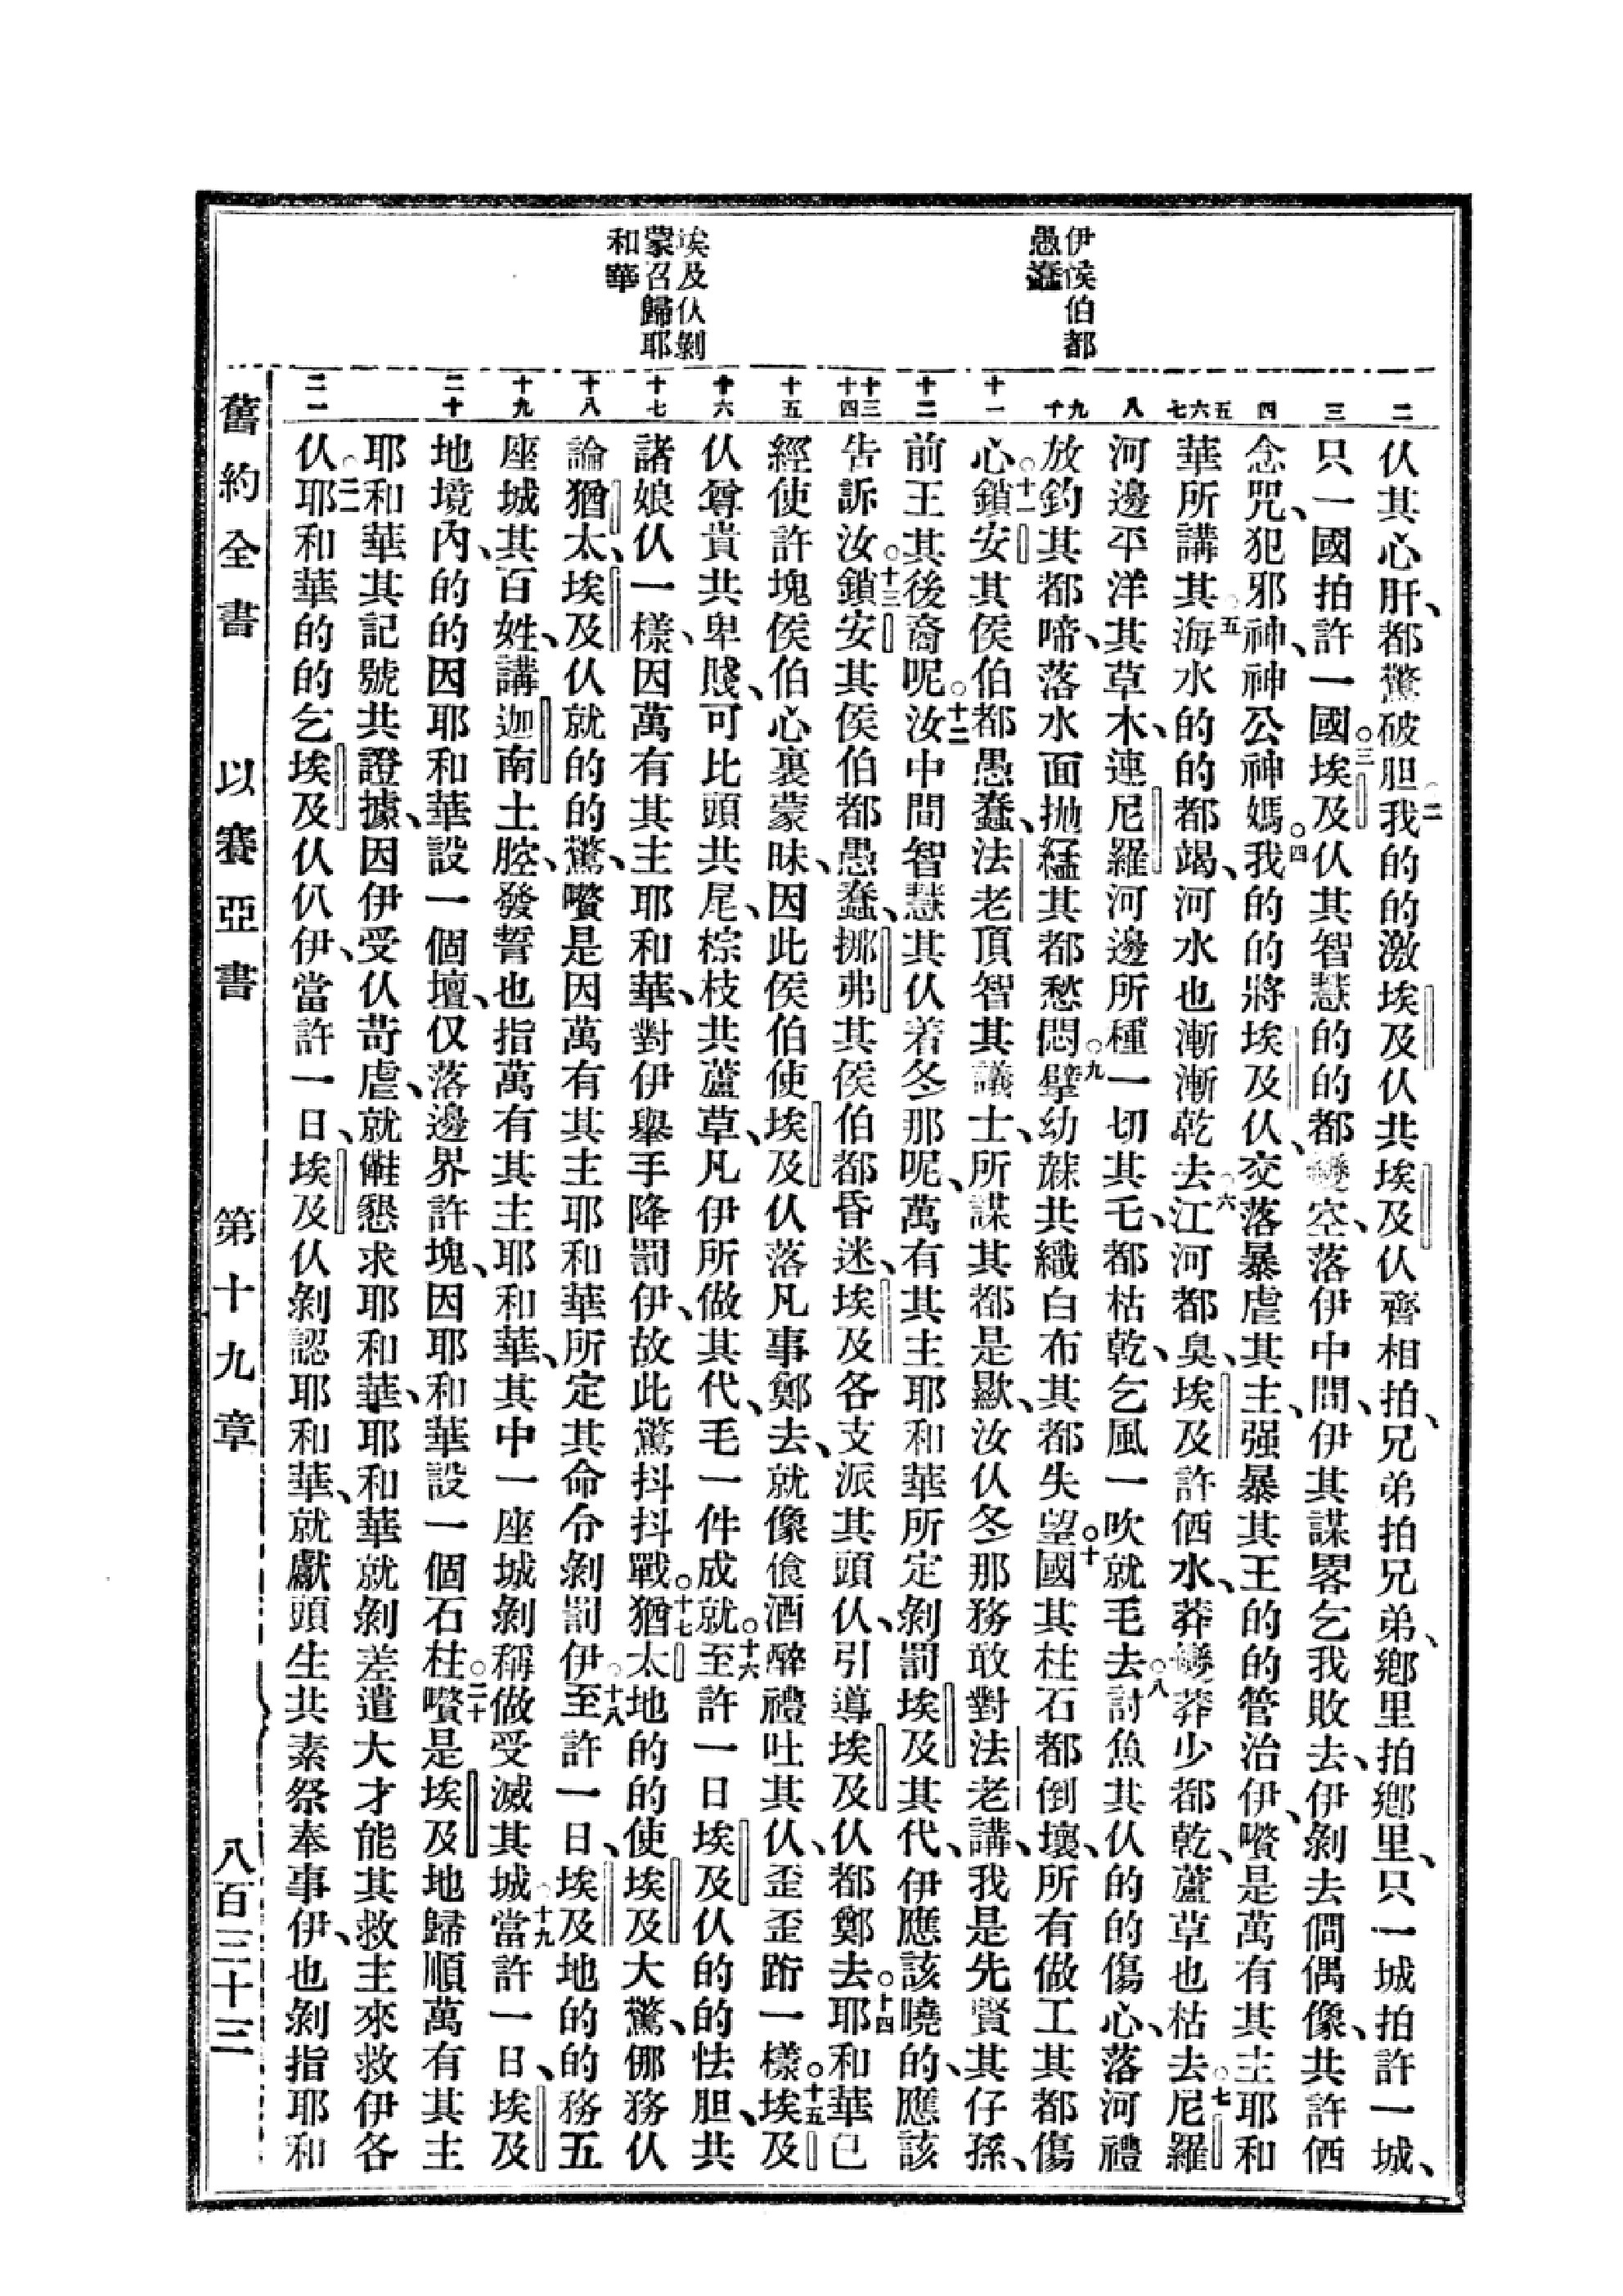 伊侯伯都
愚蠢
埃及仈剝
蒙召歸耶
和華
二 三 四 五 六 七 八 九 十 十一 十二 十三 十四 十五 十六 十七 十八 十九 二十 二一
仈其心肝、都驚破胆○二我的的激埃及仈共埃及仈齊相拍、兄弟拍兄弟、鄉里拍鄉里、只一城拍許一城、
只一國拍許一國○三埃及仈其智慧的的都空、落伊中間、伊其謀畧乞我敗去、伊剝去僩偶像、共許価
念咒、犯邪神、神公神媽○四我的的將埃及仈、交落暴虐其主、强暴其王的的管治伊、嚽是萬有其主耶和
華所講其○五海水的的都竭、河水也漸漸乾去○六江河都臭、埃及許価水、莽莽少都乾、蘆草也枯去○七尼羅
河邊平洋其草木、連尼羅河邊所種一切其毛、都枯乾、乞風一吹就毛去○八討魚其仈的的傷心、落河禮
放釣其都啼、落水面拋綕其都愁悶○九擘幼蔴共織白布其都失望○十國其柱石都倒壞、所有做工其都傷
心○十一鎖安其侯伯都愚蠢、法老頂智其議士、所謀其都是歞、汝仈冬那務敢對法老講、我是先賢其仔孫、
前王其後裔呢○十二汝中間智慧其仈着冬那呢、萬有其主耶和華所定剝罰埃及其代、伊應該曉的、應該
告訴汝○十三鎖安其侯伯都愚蠢、挪弗其侯伯都昏迷、埃及各支派其頭仈、引導埃及仈都鄭去○十四耶和華已
經使許塊侯伯心裏蒙昧、因此侯伯使埃及仈落凡事鄭去、就像飡酒醉禮吐其仈、歪歪跨一樣○十五埃及
仈尊貴共卑賤、可比頭共尾、棕枝共蘆草、凡伊所做其代、毛一件成就○十六至許一日埃及仈的的怯胆、共
諸娘仈一樣、因萬有其主耶和華、對伊舉手降罰伊、故此驚抖抖戰○十七猶太地的的使埃及大驚、倻務仈
論猶太、埃及仈就的的驚、嚽是因萬有其主耶和華所定其命令剝罰伊○十八至許一日、埃及地的的務五
座城其百姓、講迦南土腔、發誓也指萬有其主耶和華、其中一座城剝稱做受滅其城○十九當許一日、埃及
地境內、的的因耶和華設一個壇、仅落邊界許塊、因耶和華設一個石柱○二十嚽是埃及地歸順萬有其主
耶和華其記號共證據、因伊受仈苛虐、就儺懇求耶和華、耶和華就剝差遣大才能其救主來救伊各
仈○二一耶和華的的乞埃及仈仈伊、當許一日、埃及仈剝認耶和華、就獻頭生共素祭奉事伊、也剝指耶和
舊約全書 以賽亞書 第十九章 八百三十三